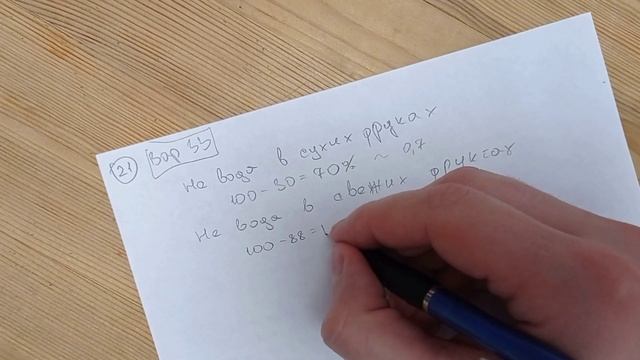 21 Вар 33
Не вода в сухих фруках
100 - 30 = 70% ~ 0,7
Не вода в свежих фруктах
100 - 88 = 1